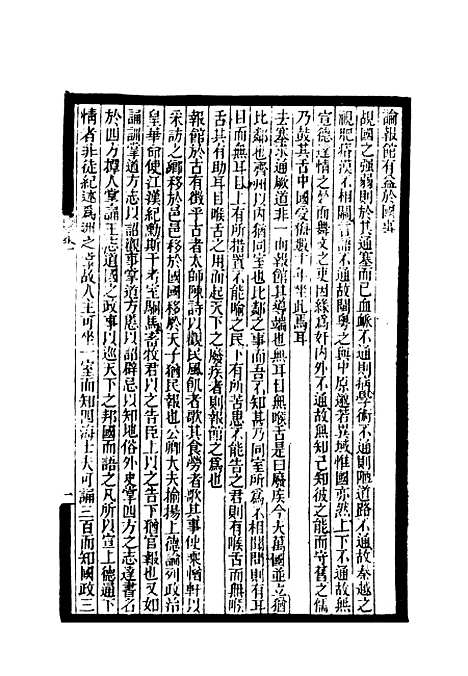 論報館有益於國事
覘國之强弱則於其通塞而已血脈不通則病學術不通則陋道路不通故秦越之
視肥瘠漠不相關言語不通故閩粤之與中原邈若異域惟國亦然上下不通故無
宣德達情之效而舞文之吏因緣爲奸内外不通故無知己知彼之能而守舊之儒
乃鼓其舌中國受侮數十年坐此焉耳
去塞求通厥道非一而報館其導端也無耳目無喉舌是曰廢疾今夫萬國並立猶
比鄰也齊州以内猶同室也比鄰之事而吾不知甚乃同室所爲不相聞問則有耳
目而無耳目上有所措置不能喻之民下有所苦患不能告之君則有喉舌而無喉
舌其有助耳目喉舌之用而起天下之廢疾者則報館之爲也
報館於古有徵乎古者太師陳詩以觀民風飢者歌其食勞者歌其事使乘輶軒以
采訪之鄉移於邑邑移於國國移於天子猶民報也公卿大夫揄揚上德論列政治
皇華命使江漢紀勳斯干考室駉馬畜牧君以之告臣上以之告下猶官報也又如
誦訓掌道方志以詔觀事掌道方慝以詔辟忌以知地俗外史掌四方之志達書名
於四方撢人掌誦王志道國之政事以巡天下之邦國而語之凡所以宣上德通下
情者非徒紀述兼有職掌故人主可坐一室而知四海士夫可誦三百而知國政三
一